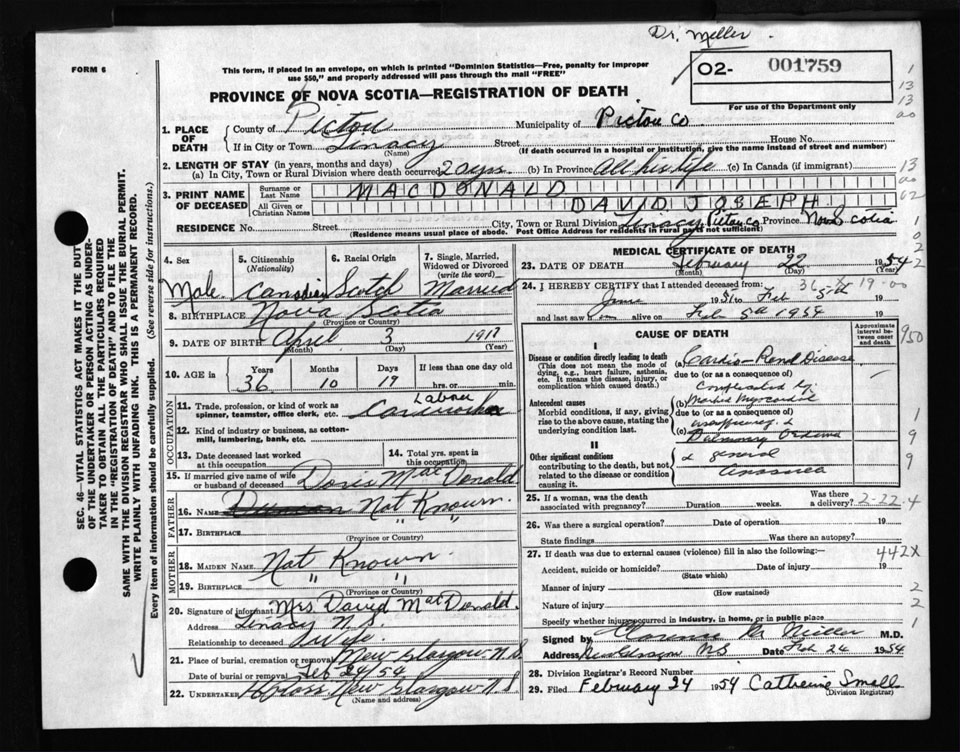 Dr. Miller.
FORM 6
This form, if placed in an envelope, on which is printed "Dominion Statistics—Free, penalty for improper
use $50," and properly addressed will pass through the mail "FREE"
O2- 001759
For use of the Department only
PROVINCE OF NOVA SCOTIA—REGISTRATION OF DEATH
1. PLACE OF DEATH
County of Pictou Municipality of Pictou Co
If in City or Town Linacy Street House No.
(Name) (If death occurred in a hospital or institution, give the name instead of street and number)
2. LENGTH OF STAY (in years, months and days)
(a) In City, Town or Rural Division where death occurred 2 ays. (b) In Province All his life (c) In Canada (if immigrant)
3. PRINT NAME OF DECEASED
Surname or Last Name MACDONALD
All Given or Christian Names DAVID JOSEPH
RESIDENCE No. Street City, Town or Rural Division Linacy Pictou Co Province Nova Scotia
(Residence means usual place of abode. Post Office Address for residents in rural parts not sufficient)
4. Sex Male
5. Citizenship (Nationality) Canadian
6. Racial Origin Scotch
7. Single, Married, Widowed or Divorced (write the word) Married
8. BIRTHPLACE Nova Scotia
(Province or Country)
9. DATE OF BIRTH April 3 1917
(Month) (Day) (Year)
10. AGE in Years 36 Months 10 Days 19 If less than one day old hrs. or min.
OCCUPATION
11. Trade, profession, or kind of work as spinner, teamster, office clerk, etc. Labour
12. Kind of industry or business, as cotton-mill, lumbering, bank, etc.
13. Date deceased last worked at this occupation
14. Total yrs. spent in this occupation
15. If married give name of wife or husband of deceased Doris MacDonald
FATHER
16. NAME Duncan Not Known.
17. BIRTHPLACE " "
(Province or Country)
MOTHER
18. MAIDEN NAME Not Known.
19. BIRTHPLACE " "
(Province or Country)
20. Signature of informant Mrs. David MacDonald.
Address Linacy N.S.
Relationship to deceased Wife.
21. Place of burial, cremation or removal New Glasgow N.S
Date of burial or removal Feb 24/54
22. UNDERTAKER New Glasgow N.S
(Name and address)
MEDICAL CERTIFICATE OF DEATH
23. DATE OF DEATH February 22 1954
(Month) (Day) (Year)
24. I HEREBY CERTIFY that I attended deceased from:
June 19 to Feb 5th 19
and last saw h im alive on Feb 5th 1954
CAUSE OF DEATH
Approximate interval between onset and death
I
Disease or condition directly leading to death
(This does not mean the mode of dying, e.g., heart failure, asthenia, etc. It means the disease, injury, or complication which caused death.)
(a) Cardio-Renal Disease
due to (or as a consequence of)
Complicated by
Antecedent causes
Morbid conditions, if any, giving rise to the above cause, stating the underlying condition last.
(b) Marked Myocardial
due to (or as a consequence of)
insufficiency &
(c) Pulmonary Oedema
II
Other significant conditions
contributing to the death, but not related to the disease or condition causing it.
& general
anasarca
25. If a woman, was the death associated with pregnancy? Duration weeks. Was there a delivery? 2-22-4
26. Was there a surgical operation? Date of operation 19
State findings Was there an autopsy?
27. If death was due to external causes (violence) fill in also the following:— 442X
Accident, suicide or homicide? Date of injury 19
(State which)
Manner of injury 2
(How sustained)
Nature of injury 2
Specify whether injury occurred in industry, in home, or in public place 1
Signed by Clarence Miller M.D.
Address N.S Date Feb 24 1954
28. Division Registrar's Record Number
29. Filed February 24 1954 Catherine Small
(Division Registrar)
SEC. 46—VITAL STATISTICS ACT MAKES IT THE DUTY
OF THE UNDERTAKER OR PERSON ACTING AS UNDER-
TAKER TO OBTAIN ALL THE PARTICULARS REQUIRED
IN THE "REGISTRATION OF DEATH" AND TO FILE THE
SAME WITH THE DIVISION REGISTRAR WHO SHALL ISSUE THE BURIAL PERMIT.
WRITE PLAINLY WITH UNFADING INK. THIS IS A PERMANENT RECORD.
Every item of information should be carefully supplied. (See reverse side for instructions.)